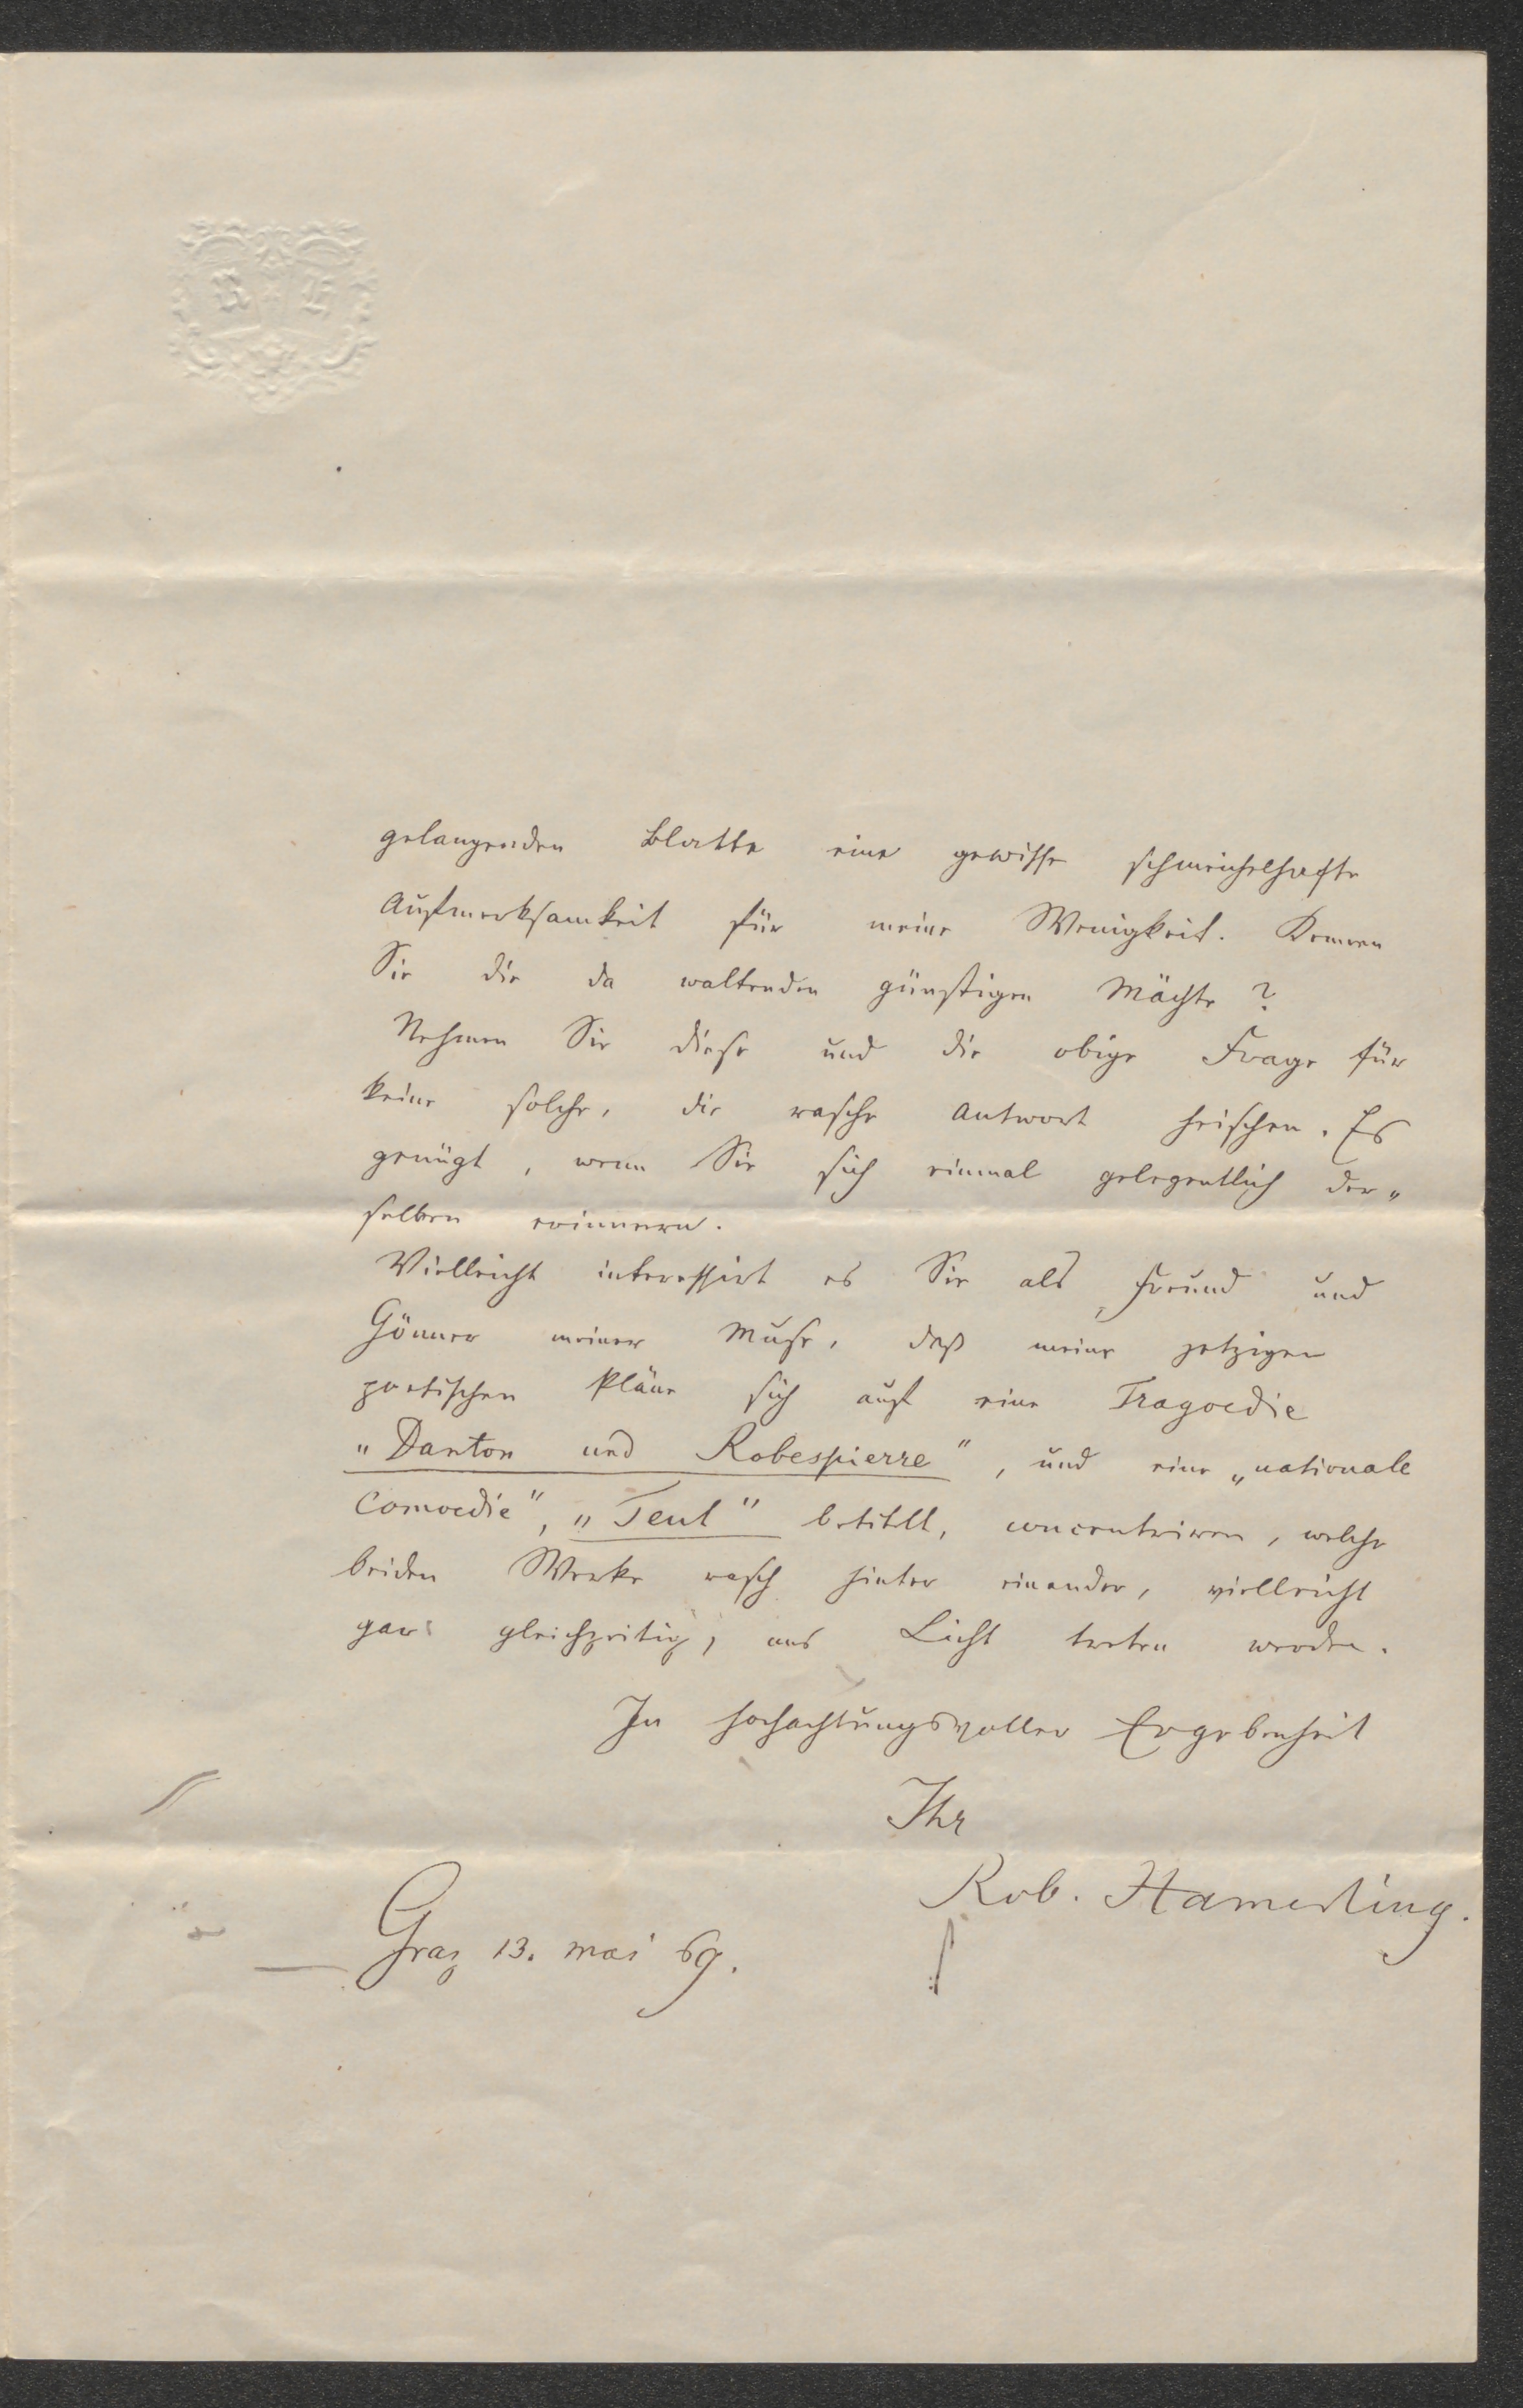 gelangenden Blatte eine gewisse schmeichelhafte
Aufmerksamkeit für meine Wenigkeit. Kennen
Sie die da waltenden günstigen Mächte?
Nehmen Sie diese und die obige Frage für
keine solche, die rasche Antwort heischen. Es
genügt, wenn Sie sich einmal gelegentlich der„
selben erinnern.
Vielleicht interessirt es Sie als Freund und
Gönner meiner Muse, daß meine jetzigen
poetischen Pläne sich auf eine Tragoedie
„Danton und Robespierre", und eine „nationale
Comoedie", „Teut" betitelt, concentriren, welche
beiden Werke rasch hinter einander, vielleicht
gar gleichzeitig, ans Licht treten werden.
In hochachtungsvoller Ergebenheit
Ihr
Rob. Hamerling.
Graz 13. Mai 69.